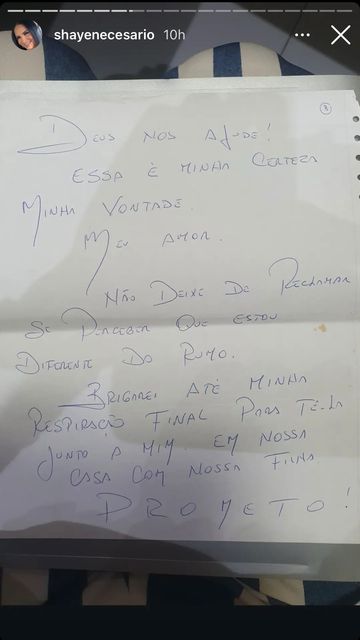 shayenecesario 10h
3
DEUS NOS AJUDE!
ESSA É MINHA CERTEZA
MINHA VONTADE.
MEU AMOR.
NÃO DEIXE DE RECLAMAR
SE PERCEBER QUE ESTOU
DIFERENTE DO RUMO.
BRIGAREI ATÉ MINHA
RESPIRAÇÃO FINAL PARA TÊ-LA
JUNTO A MIM. EM NOSSA
CASA COM NOSSA FILHA
PROMETO!